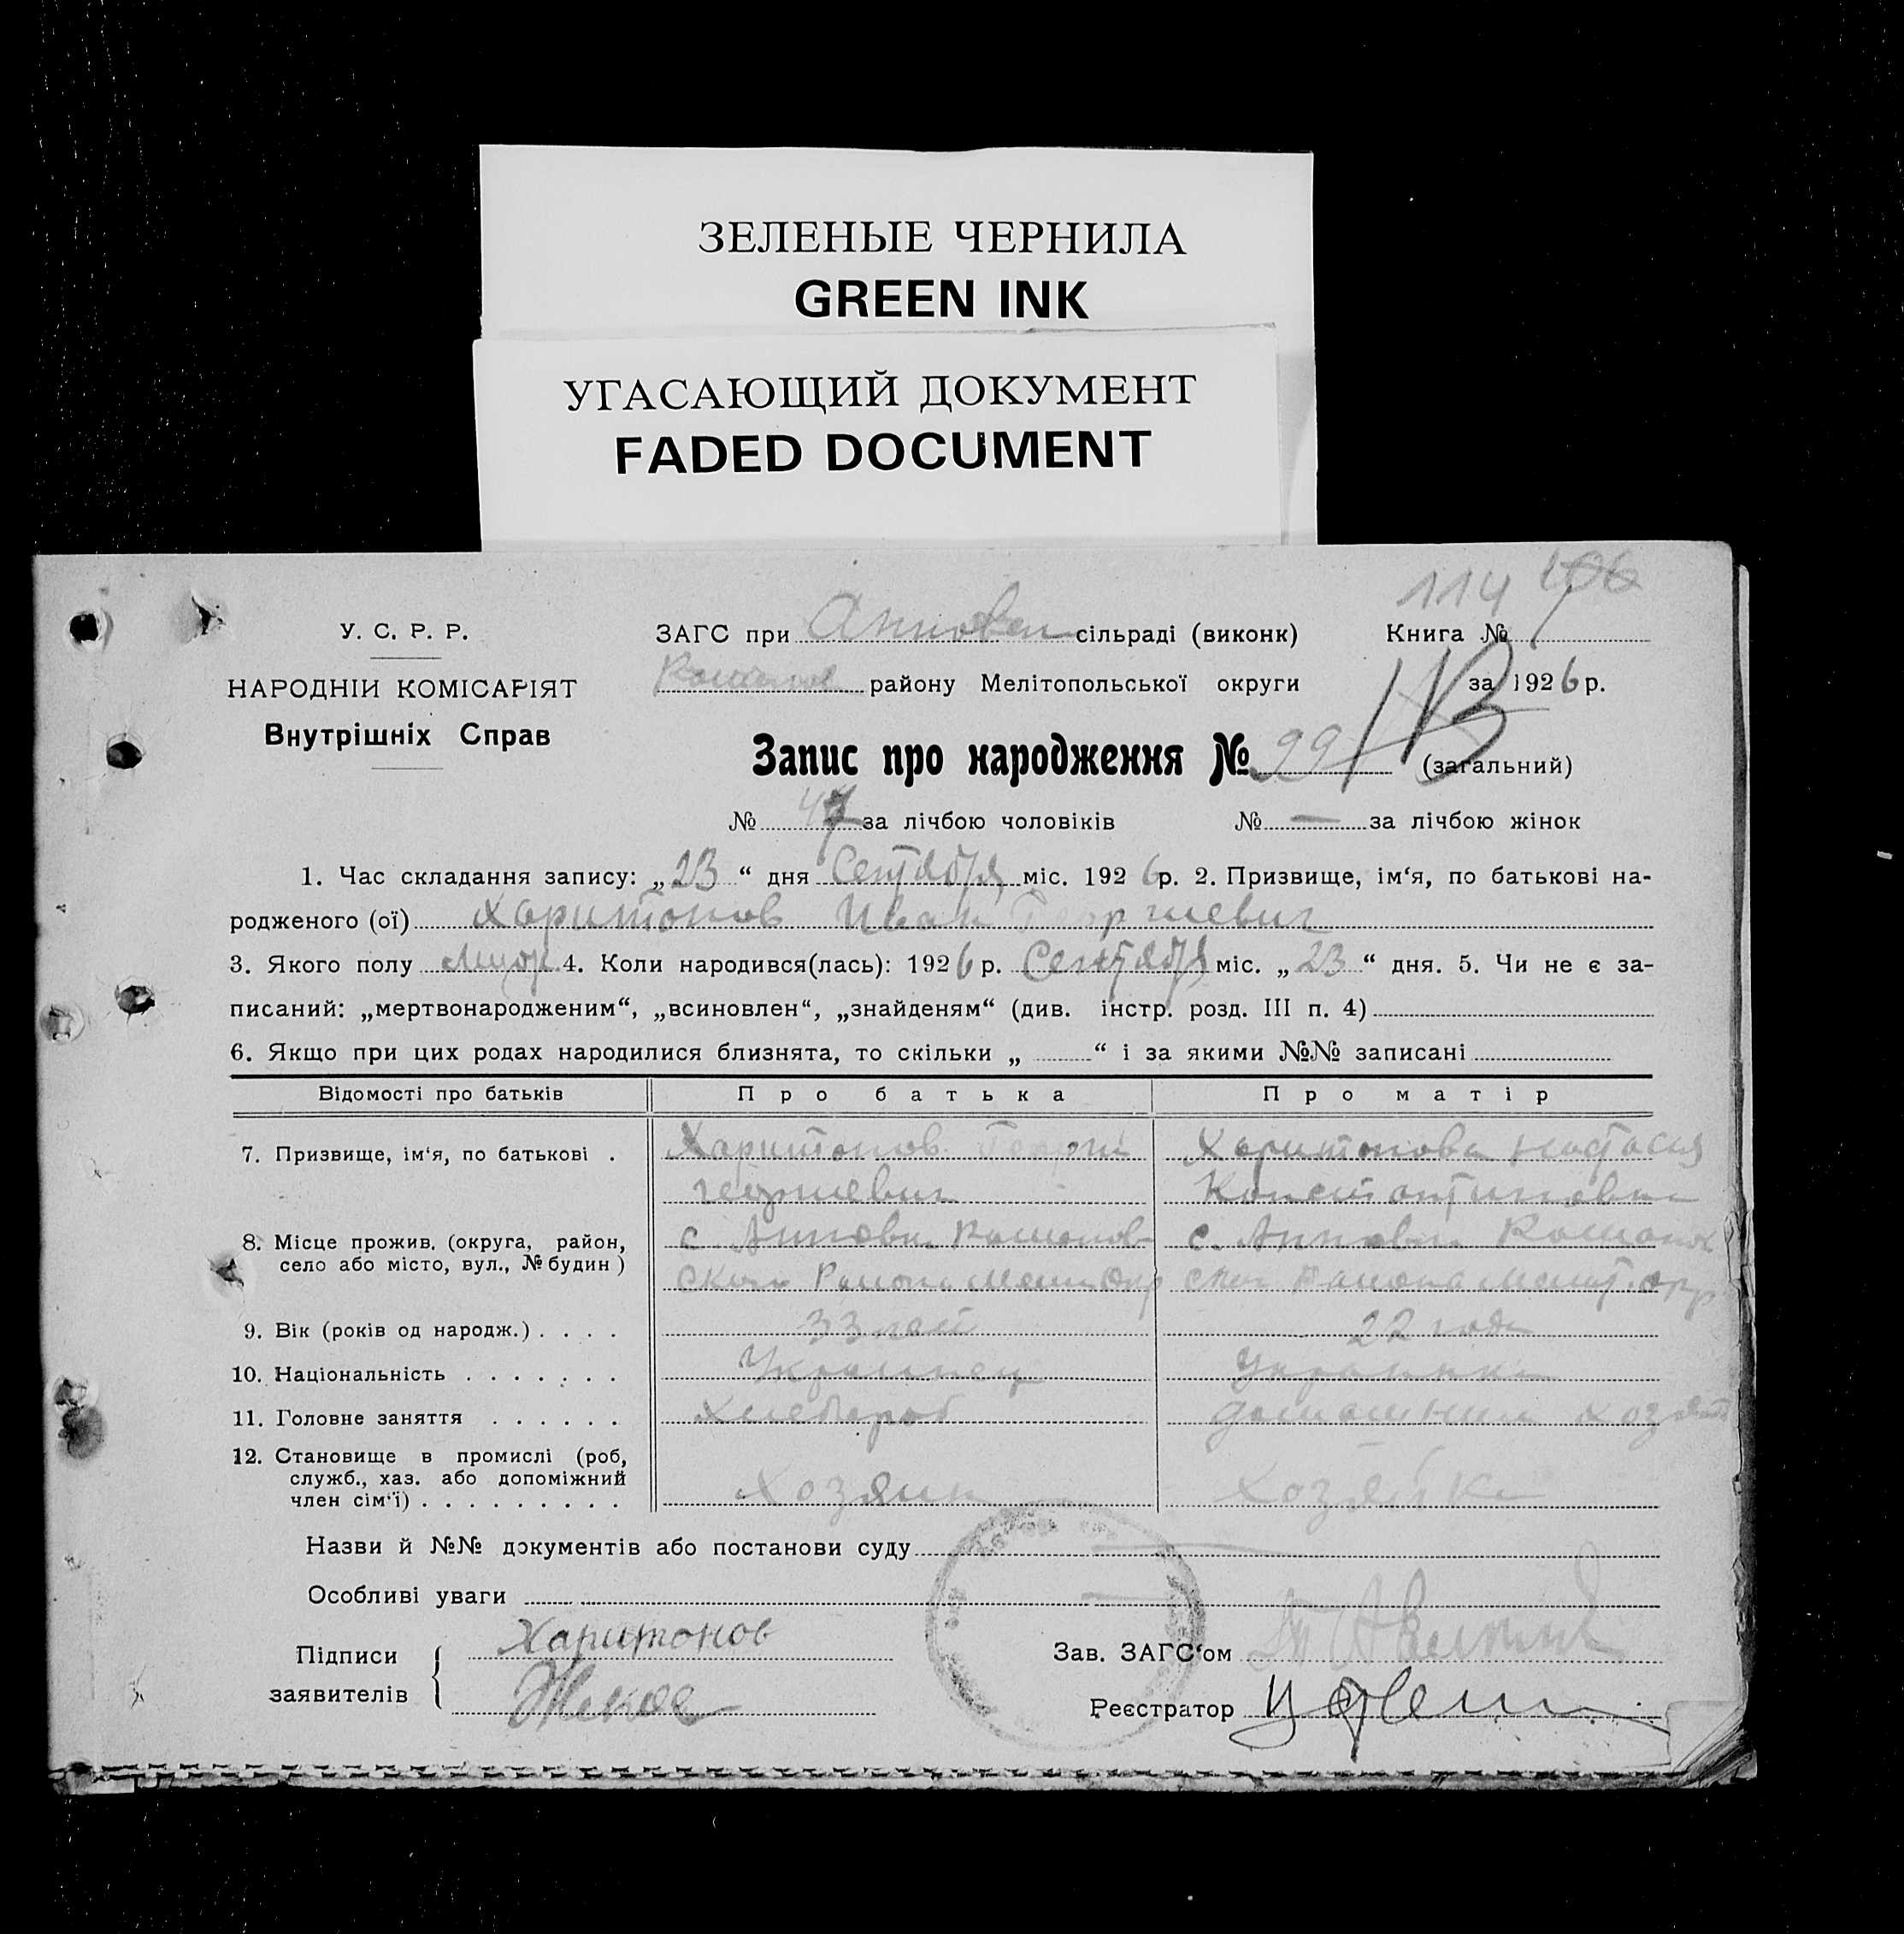 ЗЕЛЕНЫЕ ЧЕРНИЛА
GREEN INK
УГАСАЮЩИЙ ДОКУМЕНТ
FADED DOCUMENT
114 106
У. С. Р. Р.
НАРОДНІЙ КОМІСАРІЯТ
Внутрішніх Справ
ЗАГС при сільраді (виконк) Книга №
району Мелітопольської округи за 1926 р.
Запис про народження № 99 (загальний)
№ 47 за лічбою чоловіків № — за лічбою жінок
1. Час складання запису: „23“ дня Сентября міс. 1926 р. 2. Призвище, ім‘я, по батькові на-
родженого (ої) Харитонов Иван Георгиевич
3. Якого полу муж. 4. Коли народився(лась): 1926 р. Сентября міс. „23“ дня. 5. Чи не є за-
писаний: „мертвонародженим“, „всиновлен“, „знайденям“ (див. інстр. розд. III п. 4)
6. Якщо при цих родах народилися близнята, то скільки „ “ і за якими №№ записані
Відомості про батьків Про батька Про матір
7. Призвище, ім‘я, по батькові . Харитонов Георгий Харитонова Настасия
Константиновна
8. Місце прожив. (округа, район, с. Анновка с. Анновка
село або місто, вул., № будин) Района Района
9. Вік (років од народж.) . . . . 33 лет 22 года
10. Національність . . . . . . . Украинец Украинка
11. Головне заняття . . . . . . Хлебороб домашния хозяй
12. Становище в промислі (роб,
служб., хаз. або допоміжний
член сім‘ї) . . . . . . . . . Хозяин Хозяйка
Назви й №№ документів або постанови суду
Особливі уваги
Підписи Харитонов Зав. ЗАГС‘ом
заявителів Реєстратор